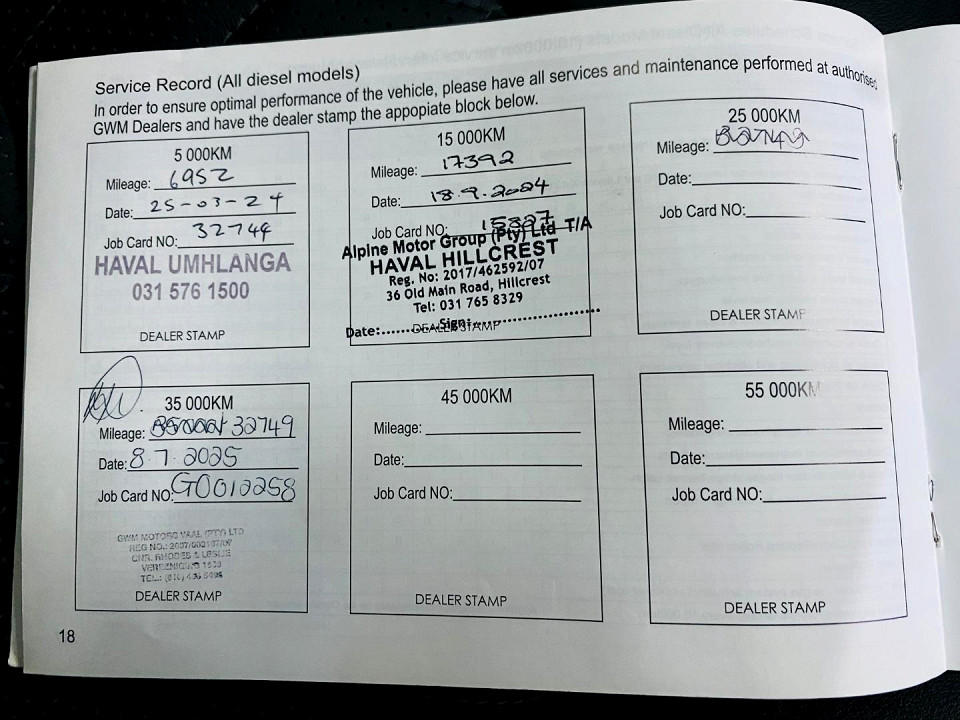 Service Record (All diesel models)
In order to ensure optimal performance of the vehicle, please have all services and maintenance performed at authorised
GWM Dealers and have the dealer stamp the appopiate block below.
5 000KM
Mileage: 6952
Date: 25-03-24
Job Card NO: 32744
HAVAL UMHLANGA
031 576 1500
DEALER STAMP
15 000KM
Mileage: 17392
Date: 18.9.2024
Job Card NO: 15827
Alpine Motor Group (Pty) Ltd T/A
HAVAL HILLCREST
Reg. No: 2017/462592/07
36 Old Main Road, Hillcrest
Tel: 031 765 8329
Date:........Sign:....................
DEALER STAMP
25 000KM
Mileage:
Date:
Job Card NO:
DEALER STAMP
35 000KM
Mileage: 32749
Date: 8.7.2025
Job Card NO: G0012258
GWM MOTORS VAAL (PTY) LTD
REG NO.:
CNR. RHODES & LESLIE
VEREENIGING
TEL.:
DEALER STAMP
45 000KM
Mileage:
Date:
Job Card NO:
DEALER STAMP
55 000KM
Mileage:
Date:
Job Card NO:
DEALER STAMP
18